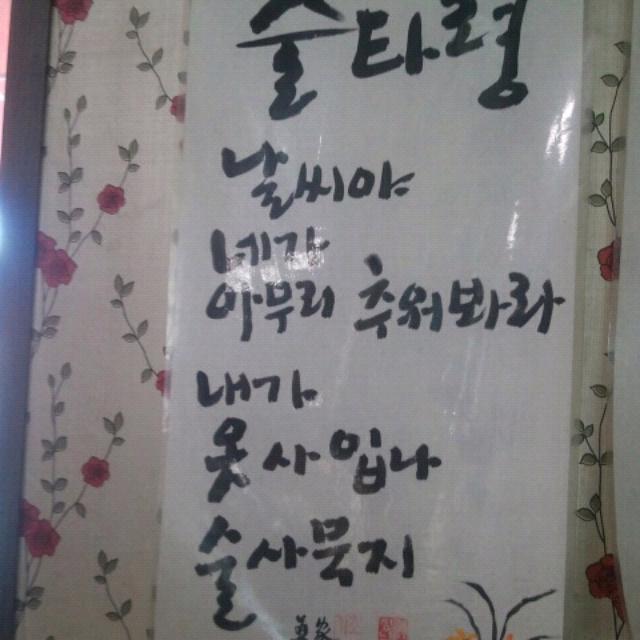 술타령
날씨야
네가
아무리 추워봐라
내가
옷 사 입나
술 사묵지